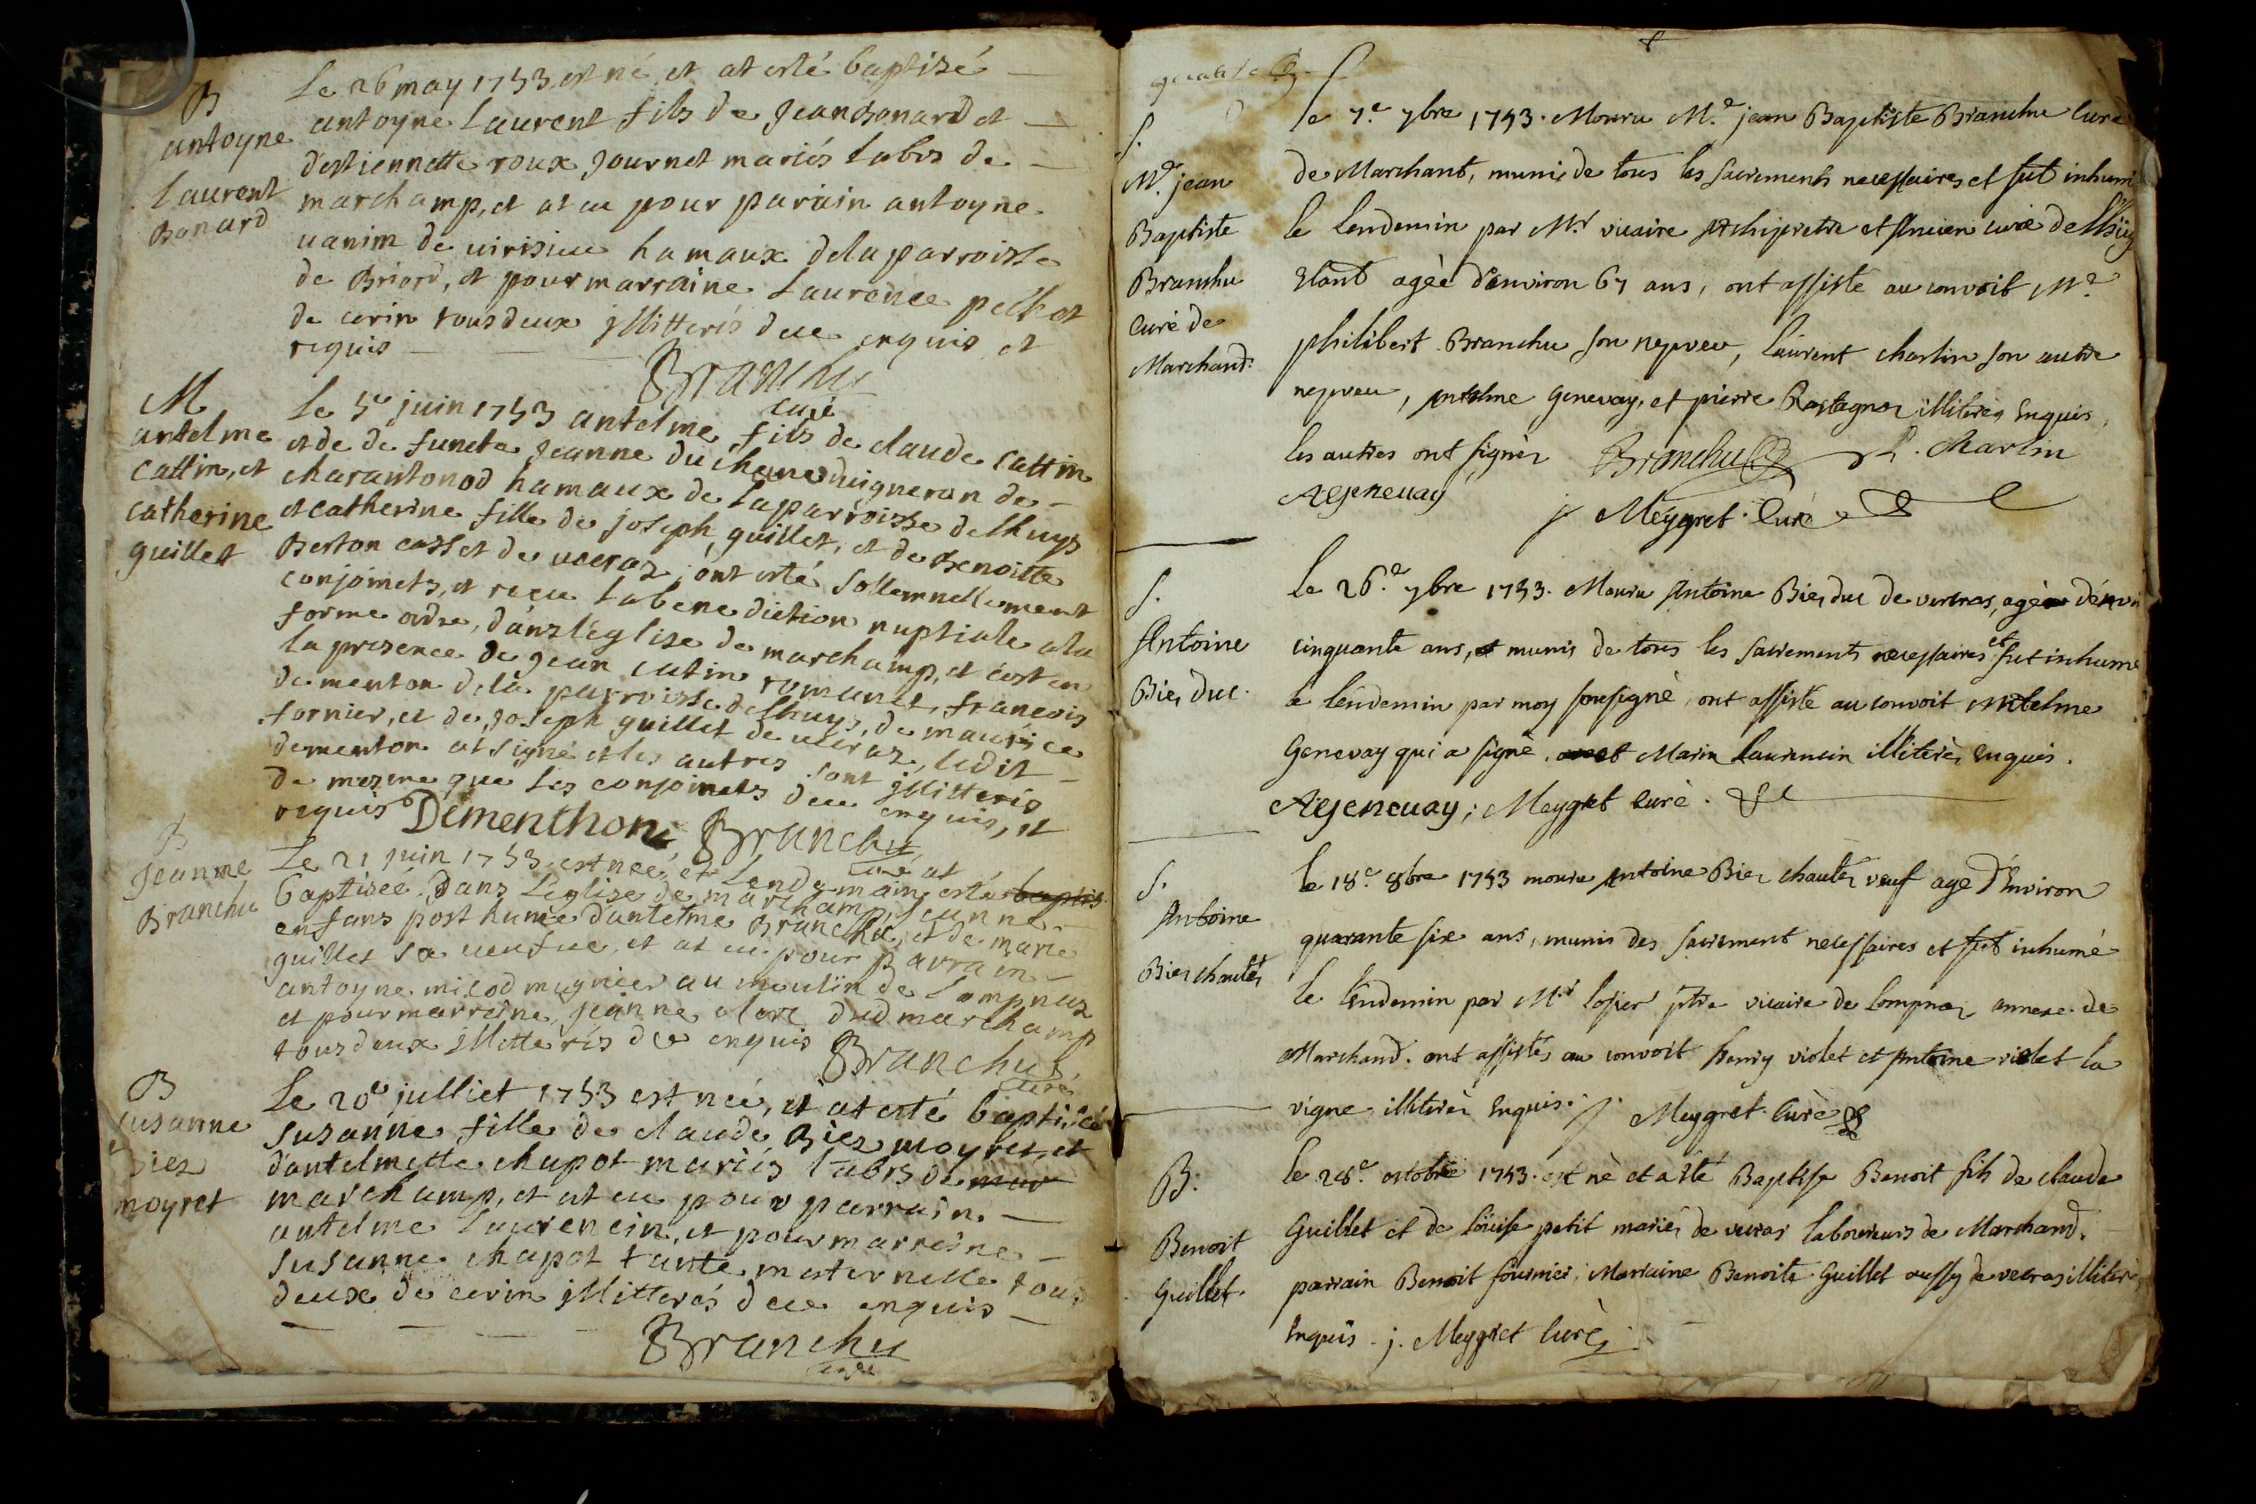 B
antoyne
Laurent
Bonard
Le 26 may 1753 est né, et at esté baptizé
antoyne Laurent fils de Jean Bonard et
d'estiennette roux Journet mariés labrs de
marchamp, et at eu pour parain antoyne
uanim de uirisieu hamaux dela parroisse
de Briord, et pour marraine Laurence pellet
de cerin tous deux jllitterés due enquis et
requis
Branchu
curé
M
antelme
Cattin, et
catherine
guillet
Le 5e juin 1753 antelme fils de claude Cattin
et de de functe Jeanne duchene uigneron de
charantonod hamaux de la parroisse delhuys
et catherine fille de joseph guillet, et de Benoitte
Berton casset de ueeraz, ont esté sollemnellement
conjoinets, et reçeu la bene diction nuptiale ala
forme ordre, dans l'église de marchamp, et cest en
la presence de jean catin romanet, francois
dementon dela parroisse delhuys, de maurice
fornier, et de joseph guillet de ueeraz, ledit
dementon at signé et les autres sont jllitterés
de mesme que les conjoinets due enquis, et
requis Dementhon Branchu
curé
B
Jeanne
Branchu
Le 21 juin 1753 est neé, et Lendemain at esté baptis
baptiseé dans l'église de marchamp, jeanne
enfans posthume d'antelme Branchu, et de marie
guillet sa ueufue, et at eu pour parrain
antoyne micod mugnier au moulin de Lompnaz
et pour marreine, jeanne clerc dud marchamp
tous deux jllitterés due enquis Branchu
curé
B
susanne
Biez
moyret
Le 20e julliet 1753 est neé, et at esté baptiseé
susanne fille de claude Biez moyret, et
d'antelmette chapot mariés labrs de mar
marchamp, et at eu pour parrain
antelme Laurencin, et pour marreine
susanne chapot tante maternelle tous
deux de cerin jllitterés due enquis
Branchu
curé
S.
Mre jean
Baptiste
Branchu
Curé de
Marchand
le 7e 7bre 1753. Mouru Mre jean Baptiste Branchu Curé
de Marchant, munis de tous les sacrements necessaires et fut inhumé
le lendemin par Mr vicaire Archipretre et Ancien curé de Lhuy
Etant agèe d'anviron 67 ans, ont assiste au convoit Mre
philibert Branchu son nepveu, laurent charlin son autre
nepveu, Antelme Genevay, et pierre Rostagnoz illiterès Enquis,
les autres ont signéz Branchu L. Charlin
A Genevay
j Meygret Curé
S.
Antoine
Biez duc.
le 26e 7bre 1753. Mouru Antoine Biez duc de vertras, agèe d'env
cinquante ans, et munis de tous les sacrements necessaires et fut inhume
le lendemin par moy sousigné, ont assisté au convoit Antelme
Genevay qui a signé. et Marin Laurencin illiterès Enquis.
A Genevay; Meygret Curé.
S.
Antoine
Biez chautéz
le 18e 8bre 1753 mouru Antoine Biez chautéz veuf age d'Environ
quarante six ans, munis des sacrement necessaires et fut inhumé
le lendemin par Mr losier ptre vicaire de Lompnaz annexe de
Marchand. ont assistés au convoit henry violet et Antoine violet la
vigne illiterès Enquis. j. Meygret Curé
B.
Benoit
Guillet.
le 28e octobre 1753. est nè et a été Baptisse Benoit fils de claude
Guillet et de Loüise petit mariés de veeras laboureurs de Marchand.
parrain Benoit fournier, Marraine Benoite Guillet aussy de veeras illiteré
Enquis. j. Meygret Curé